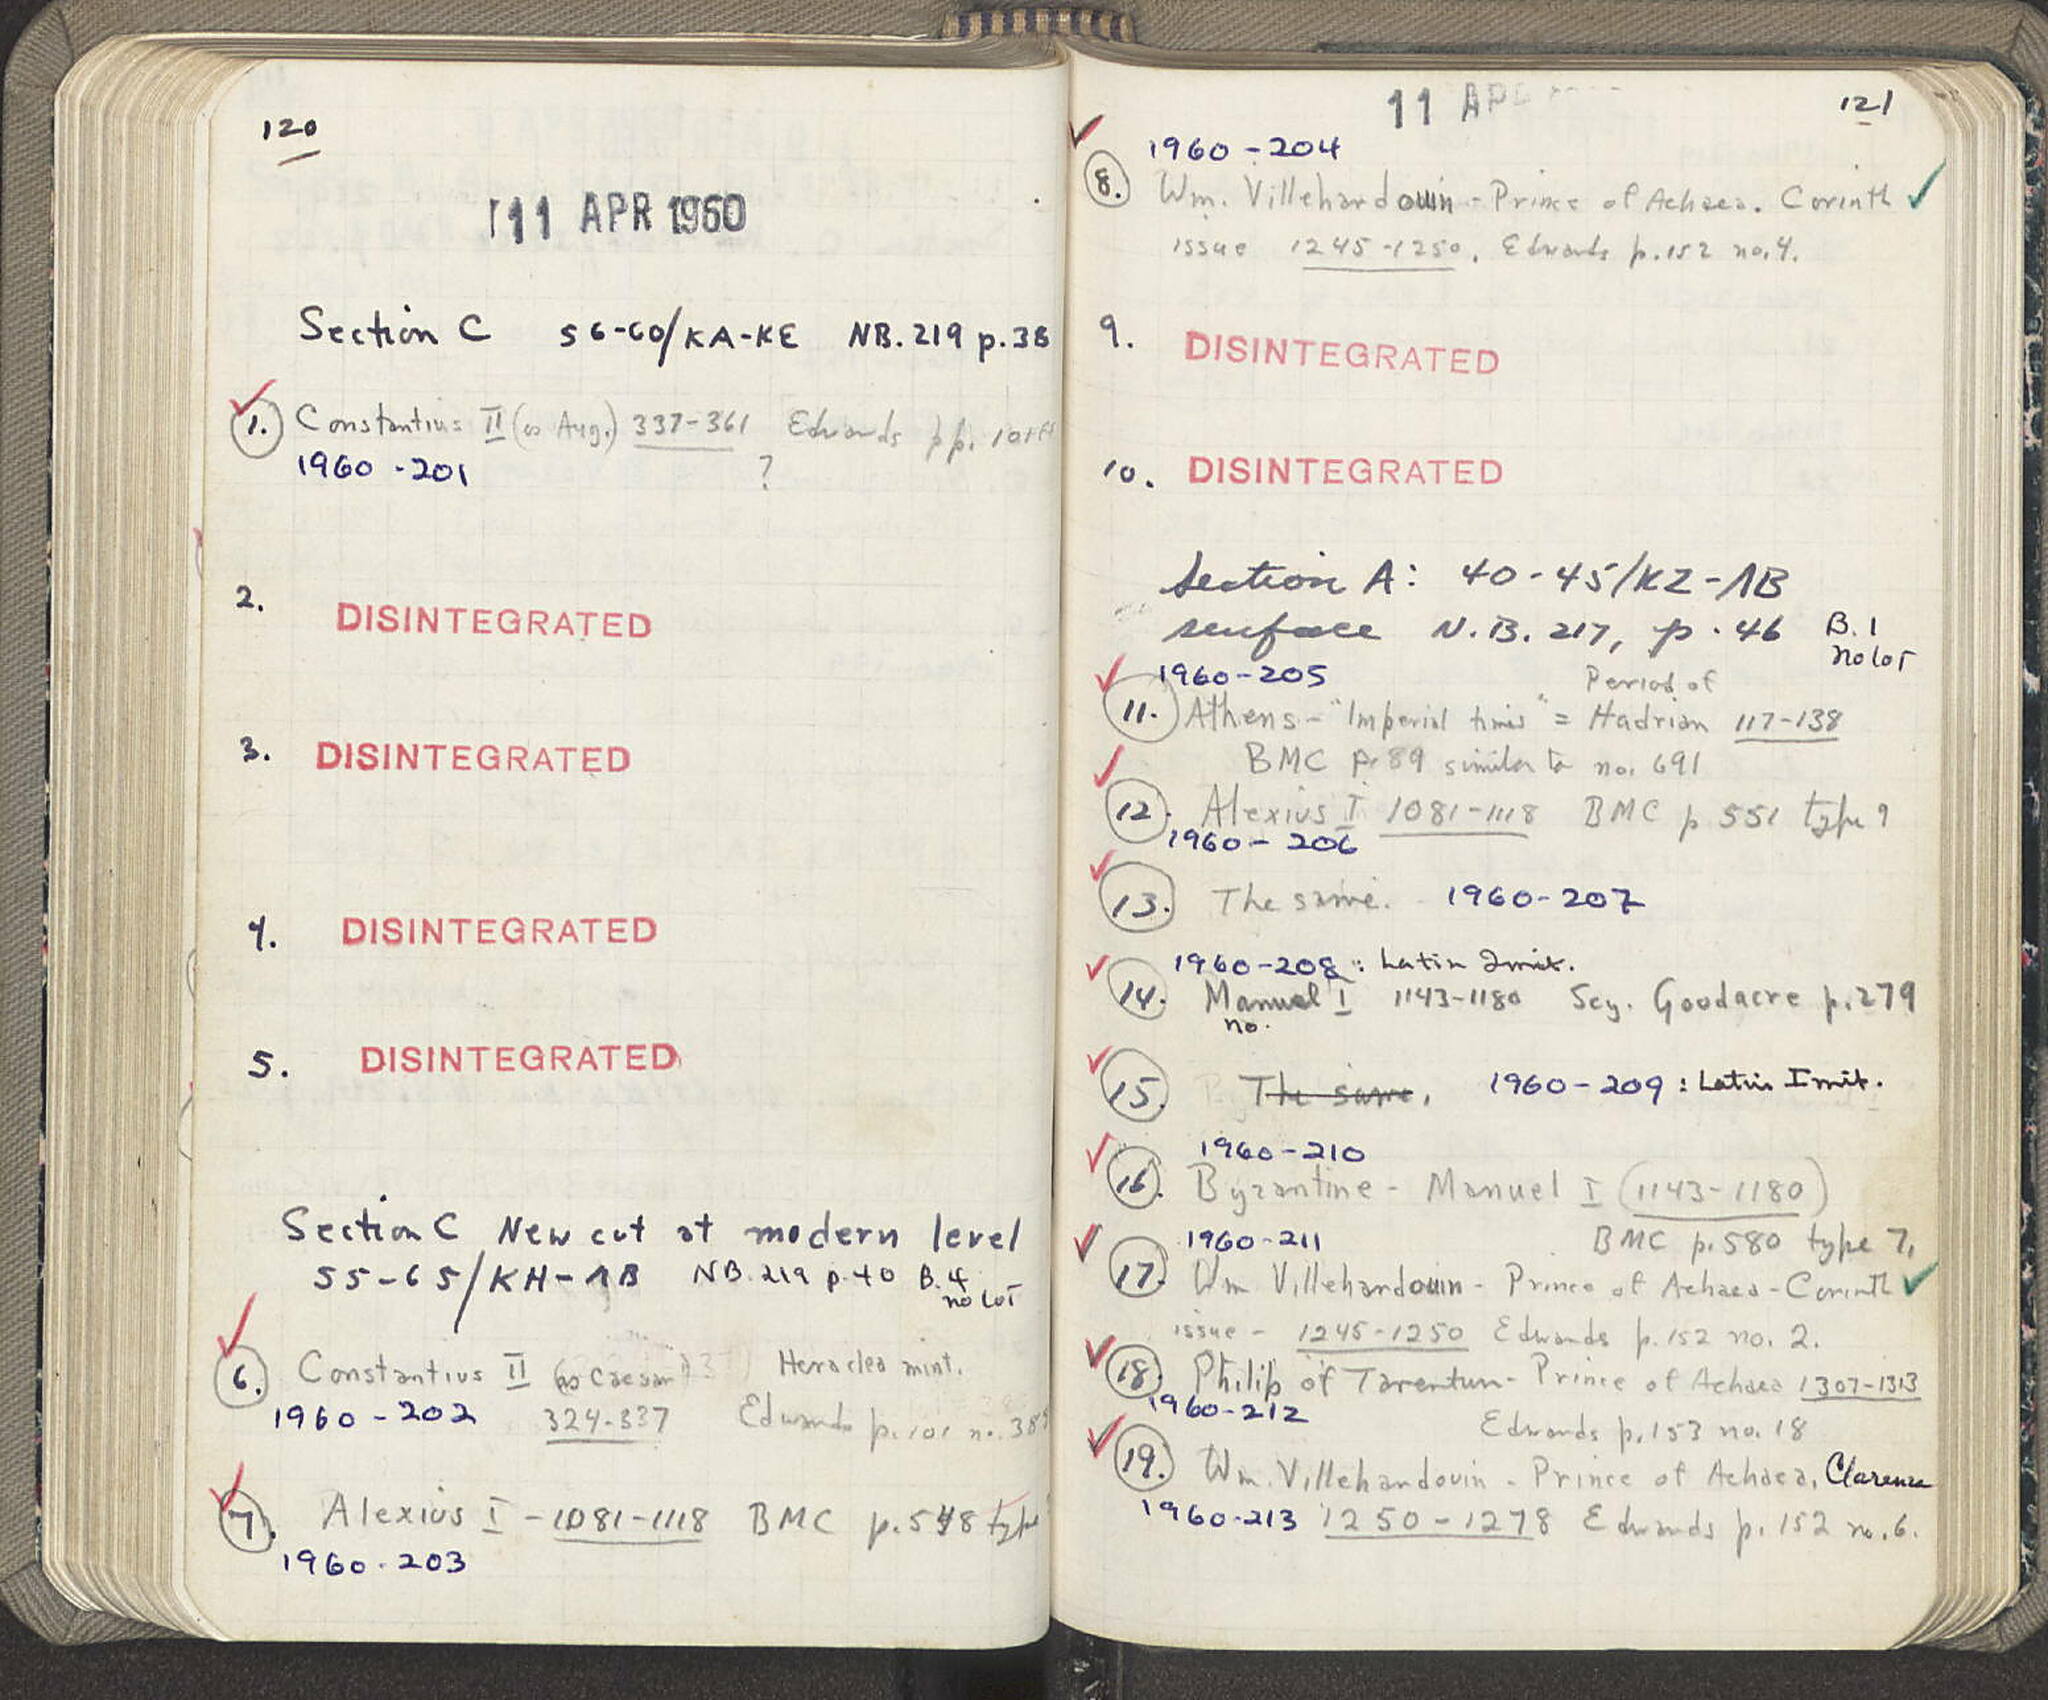 120
11 APR 1960
Section C 56-60/KA-KE NB. 219 p. 38
1. Constantius II (as Aug.) 337-361 Edwards pp. 101ff
1960-201 ?
2. DISINTEGRATED
3. DISINTEGRATED
4. DISINTEGRATED
5. DISINTEGRATED
Section C New cut at modern level
55-65/KH-ΛB NB. 219 p. 40 B. 4
no lot
6. Constantius II (as Caesar) Heraclea mint.
1960-202 324-337 Edwards p. 101 no.
7. Alexius I - 1081-1118 BMC p. 548 type
1960-203
121
11 APR
1960-204
8. Wm. Villehardouin - Prince of Achaea. Corinth
issue 1245-1250. Edwards p. 152 no. 4.
9. DISINTEGRATED
10. DISINTEGRATED
Section A: 40-45/KZ-ΛB
surface N.B. 217, p. 46 B. 1
no lot
1960-205 Period of
11. Athens - "Imperial times" = Hadrian 117-138
BMC p. 89 similar to no. 691
12. Alexius I 1081-1118 BMC p 551 type 9
1960-206
13. The same. 1960-207
1960-208: Latin Imit.
14. Manuel I 1143-1180 Scy. Goodacre p. 279
no.
15. The same. 1960-209: Latin Imit.
1960-210
16. Byzantine - Manuel I (1143-1180)
1960-211 BMC p. 580 type 7.
17. Wm Villehardouin - Prince of Achaea - Corinth
issue - 1245-1250 Edwards p. 152 no. 2.
18. Philip of Tarentum - Prince of Achaea 1307-1313
1960-212 Edwards p. 153 no. 18
19. Wm. Villehardouin - Prince of Achaea, Clarenza
1960-213 1250-1278 Edwards p. 152 no. 6.